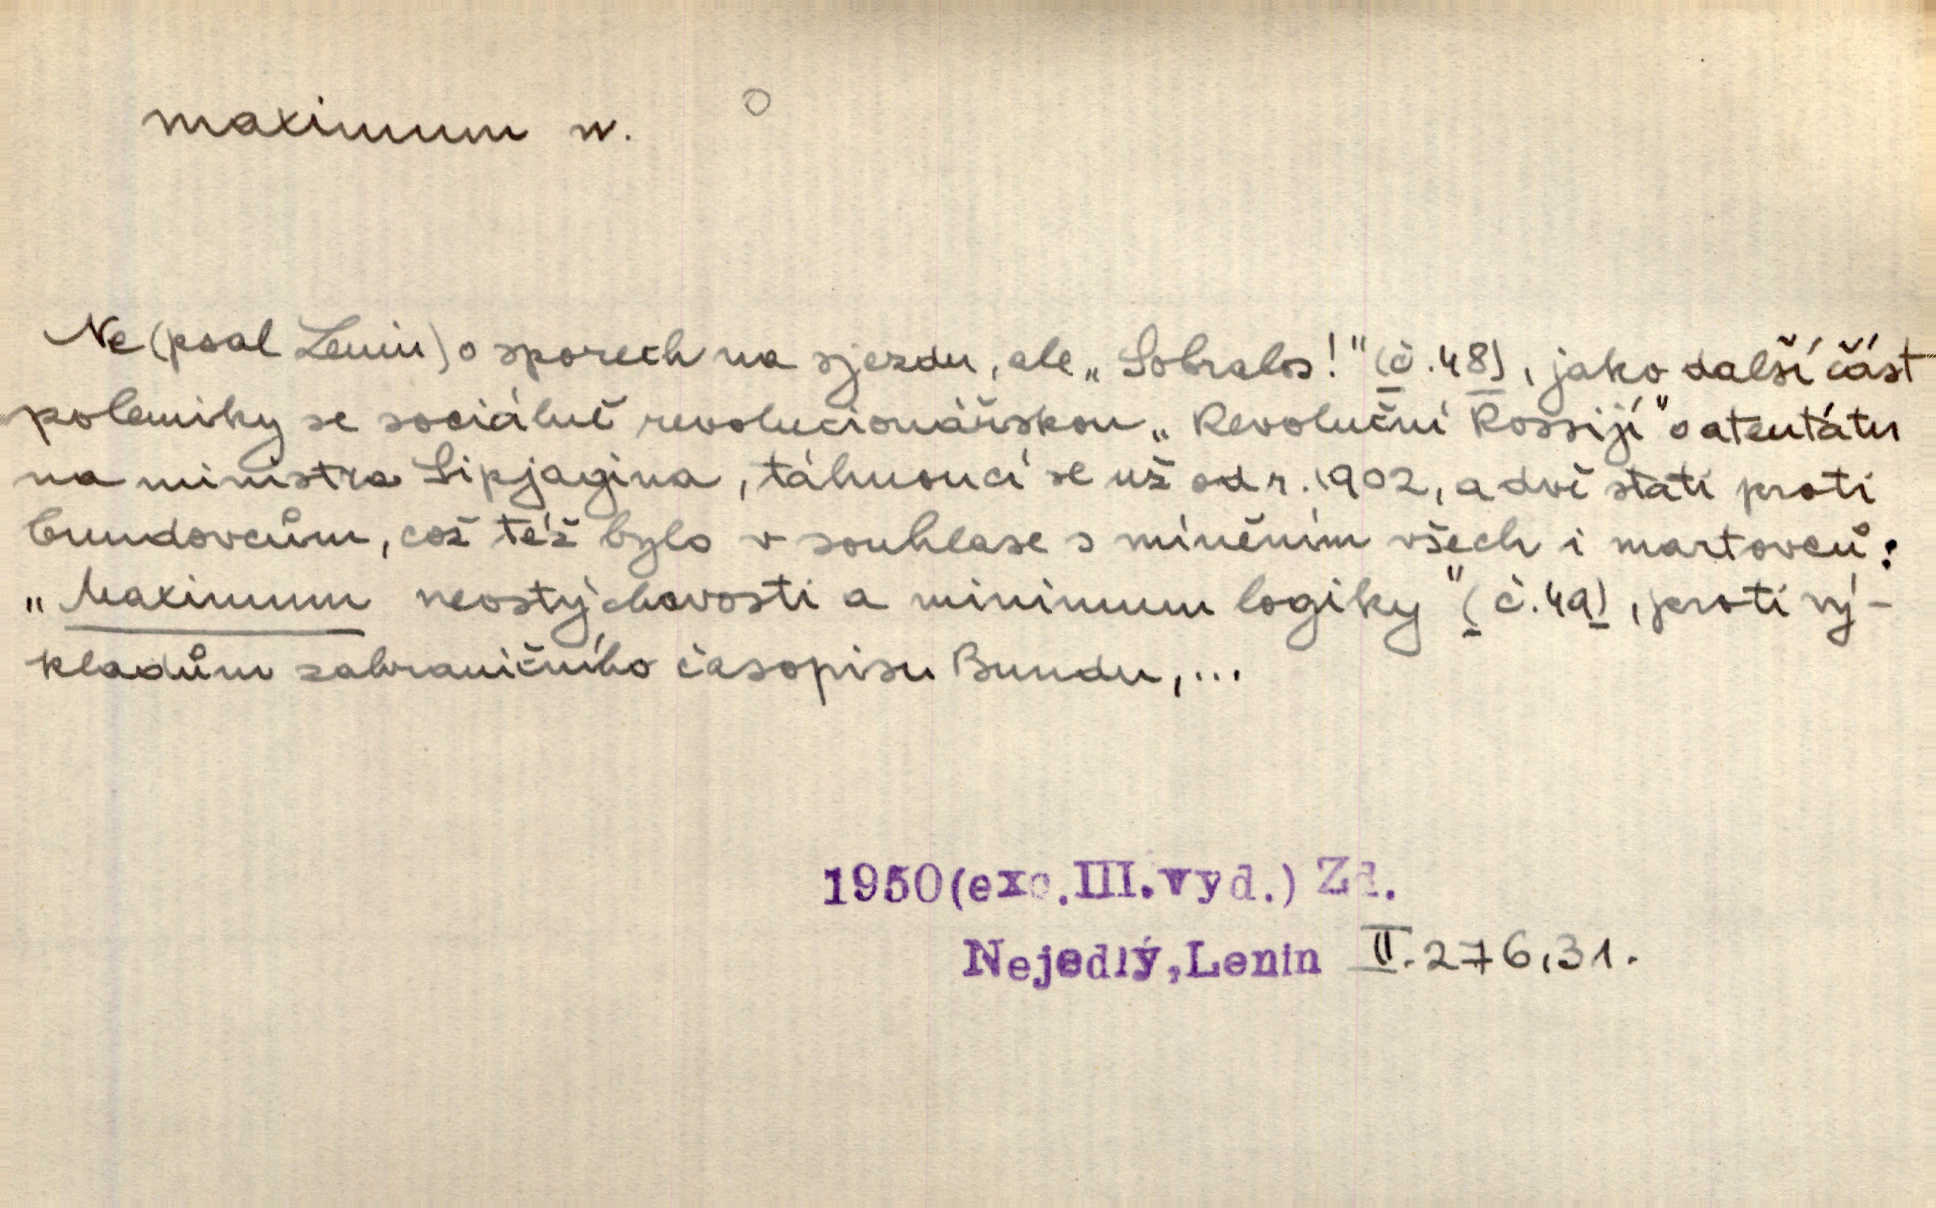 maximum n.
Ne (psal Lenin) o sporech na sjezdu, ale „Sobralos!" (č.48), jako další část
polemiky se sociálně revolucionářskou „Revoluční Rossijí" o atentátu
na ministra Sipjagina, táhnoucí se už od r. 1902, a dvě stati proti
bundovcům, což též bylo v souhlase s míněním všech i martovců:
„Maximum neostýchavosti a minimum logiky" (č.49), proti vý-
kladům zahraničního časopisu Bundu,...
1950(exc.III.vyd.) Zd.
Nejedlý,Lenin II.276,31.